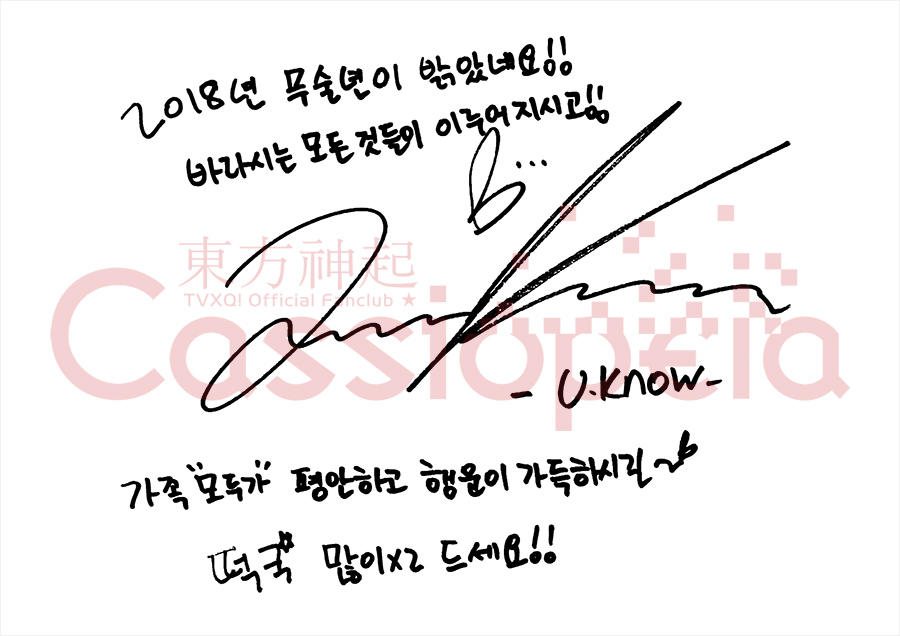 2018년 무술년이 밝았네요!!
바라시는 모든 것들이 이루어지시고!!
東方神起
TVXQ! Official Fanclub ★
Cassiopeia
- U.Know -
가족 "모두가" 평안하고 행운이 가득하시길~
떡국 많이x2 드세요!!